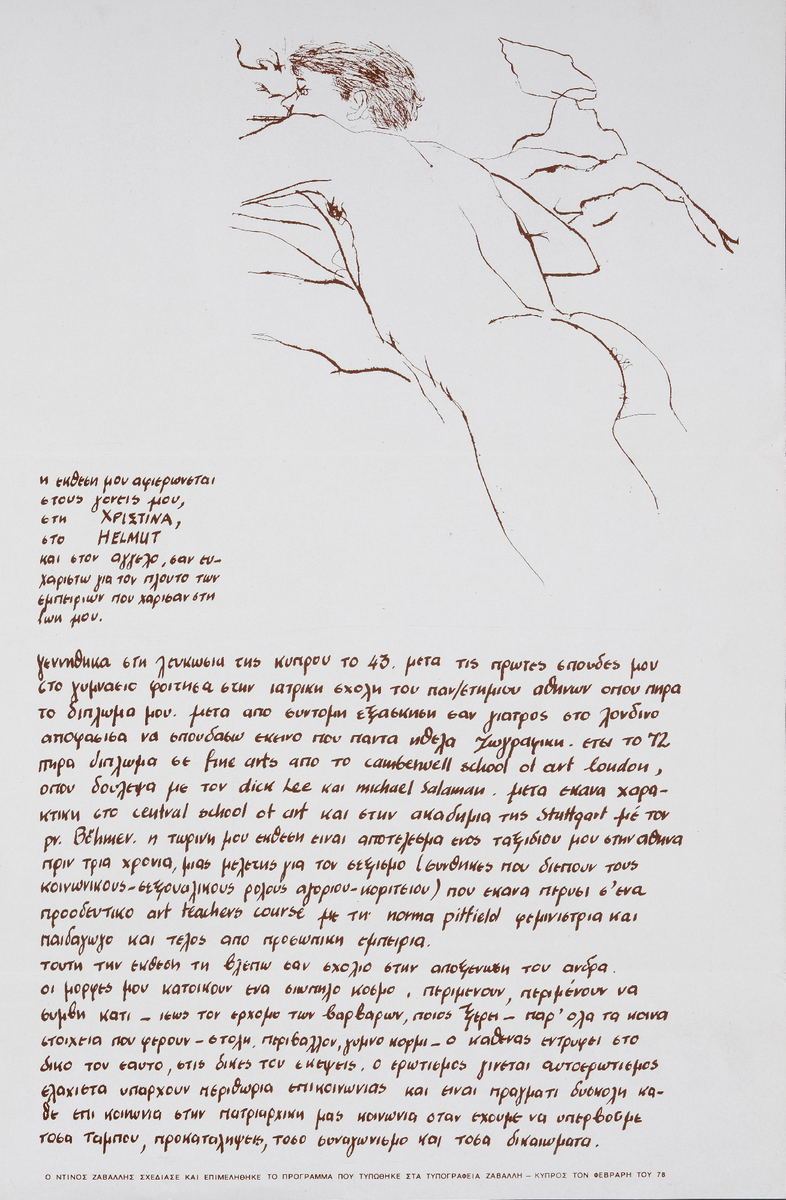 η εκθεση μου αφιερωνεται
στους γονεις μου,
στη ΧΡΙΣΤΙΝΑ,
στο HELMUT
και στον αγγελο, σαν ευ-
χαριστω για τον πλουτο των
εμπειριων που χαρισαν στη
ζωη μου.
γεννηθηκα στη λευκωσια της κυπρου το 43. μετα τις πρωτες σπουδες μου
στο γυμνασιο φοιτησα στην ιατρικη σχολη του παν/στημιου αθηνων οπου πηρα
το διπλωμα μου. μετα απο συντομη εξασκηση σαν γιατρος στο λονδινο
αποφασισα να σπουδασω εκεινο που παντα ηθελα ζωγραφικη. ετσι το 72
πηρα διπλωμα σε fine arts απο το camberwell school of art london,
οπου δουλεψα με τον dick Lee και michael Salaman. μετα εκανα χαρα-
κτικη στο central school of art και στην ακαδημια της Stuttgart μέ τον
pr. Böhmer. η τωρινη μου εκθεση ειναι αποτελεσμα ενος ταξιδιου μου στην αθηνα
πριν τρια χρονια, μιας μελετης για τον σεξισμο (συνθηκες που διεπουν τους
κοινωνικους-σεξουαλικους ρολους αγοριου-κοριτσιου) που εκανα περυσι σ'ενα
προοδευτικο art teachers course με τη norma pitfield φεμινιστρια και
παιδαγωγο και τελος απο προσωπικη εμπειρια.
τουτη την εκθεση τη βλεπω σαν σχολιο στην αποξενωση του ανδρα.
οι μορφες μου κατοικουν ενα σιωπηλο κοσμο. περιμενουν, περιμένουν να
συμβη κατι – ισως τον ερχομο των βαρβαρων, ποιος ξερει – παρ' ολα τα κοινα
στοιχεια που φερουν – στολη, περιβαλλον, γυμνο κορμι – ο καθενας εντρυφει στο
δικο του εαυτο, στις δικες του σκεψεις. ο ερωτισμος γινεται αυτοερωτισμος
ελαχιστα υπαρχουν περιθωρια επικοινωνιας και ειναι πραγματι δυσκολη κα-
θε επικοινωνια στην πατριαρχικη μας κοινωνια οταν εχουμε να υπερβουμε
τοσα ταμπου, προκαταληψεις, τοσο συναγωνισμο και τοσα δικαιωματα.
Ο ΝΤΙΝΟΣ ΖΑΒΑΛΛΗΣ ΣΧΕΔΙΑΣΕ ΚΑΙ ΕΠΙΜΕΛΗΘΗΚΕ ΤΟ ΠΡΟΓΡΑΜΜΑ ΠΟΥ ΤΥΠΩΘΗΚΕ ΣΤΑ ΤΥΠΟΓΡΑΦΕΙΑ ΖΑΒΑΛΛΗ – ΚΥΠΡΟΣ ΤΟΝ ΦΕΒΡΑΡΗ ΤΟΥ 78